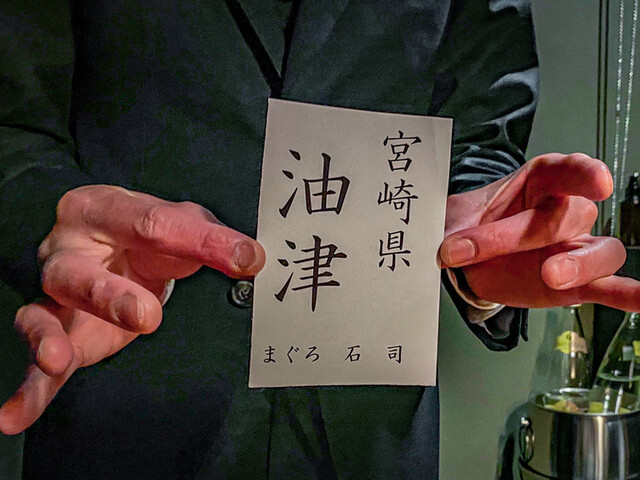 宮崎県
油津
まぐろ 石 司